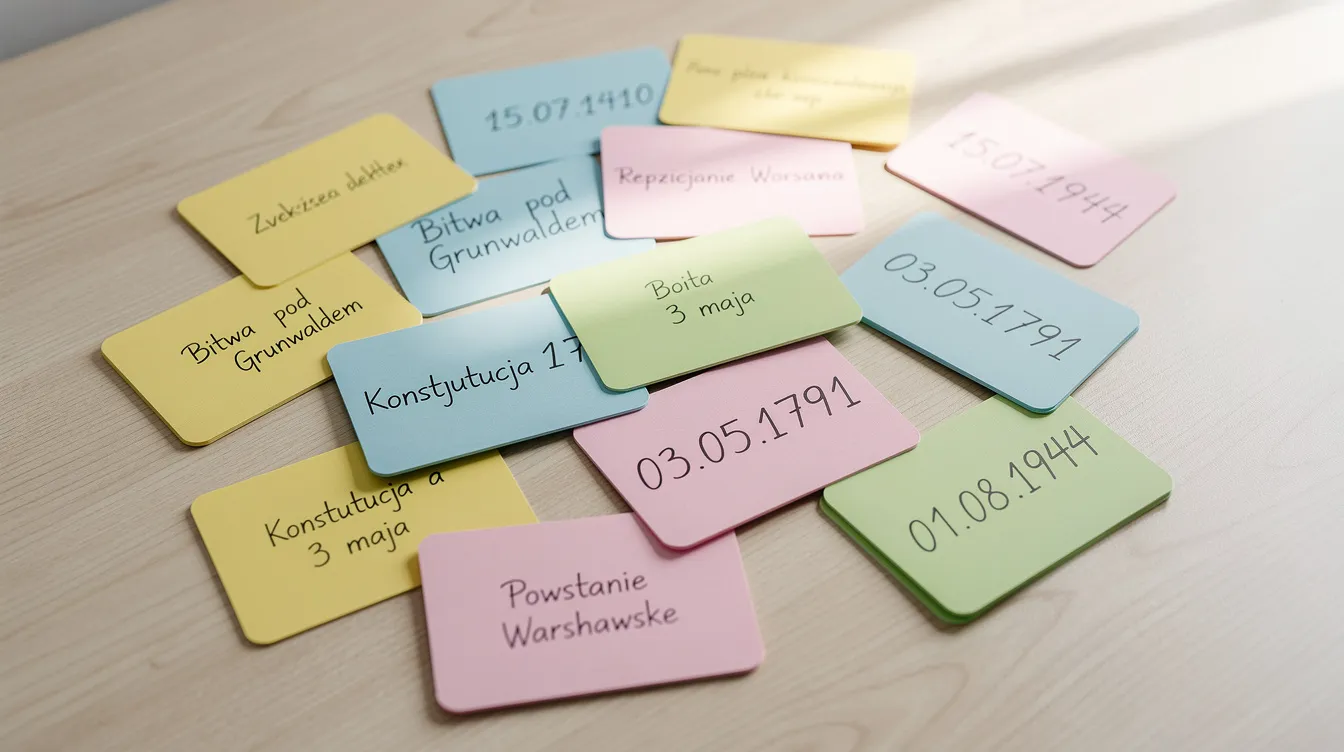 15.07.1410
Zvek-zsea dehtex
Repzicjanie Worsana
15.07.1944
Bitwa pod
Grunwaldem
Boita
3 maja
03.05.1791
Bitwa pod
Grunwaldem
Konstjutucja 17
03.05.1791
01.08.1944
Konstutucja a
3 maja
Powstanie
Warshawske